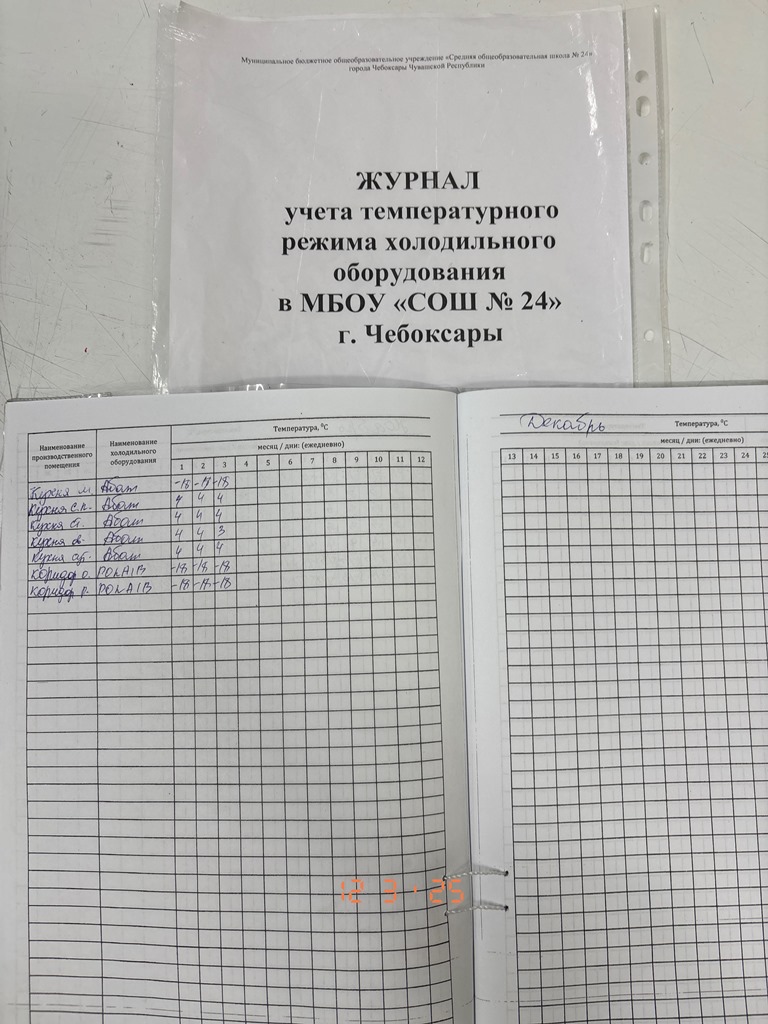 Муниципальное бюджетное общеобразовательное учреждение «Средняя общеобразовательная школа № 24»
города Чебоксары Чувашской Республики
ЖУРНАЛ
учета температурного
режима холодильного
оборудования
в МБОУ «СОШ № 24»
г. Чебоксары
Наименование производственного помещения
Наименование холодильного оборудования
Температура, ⁰С
месяц / дни: (ежедневно)
1 2 3 4 5 6 7 8 9 10 11 12
Кухня м. Абат -18 -18 -18
Кухня с.п. Абат 4 4 4
Кухня Абат 4 4 4
Кухня Абат 4 4 3
Кухня Абат 4 4 4
Коридор о. POLAIR -18 -18 -18
Коридор р. POLAIR -18 -18 -18
Декабрь
Температура, ⁰С
месяц / дни: (ежедневно)
13 14 15 16 17 18 19 20 21 22 23 24 25
12 3 ' 25